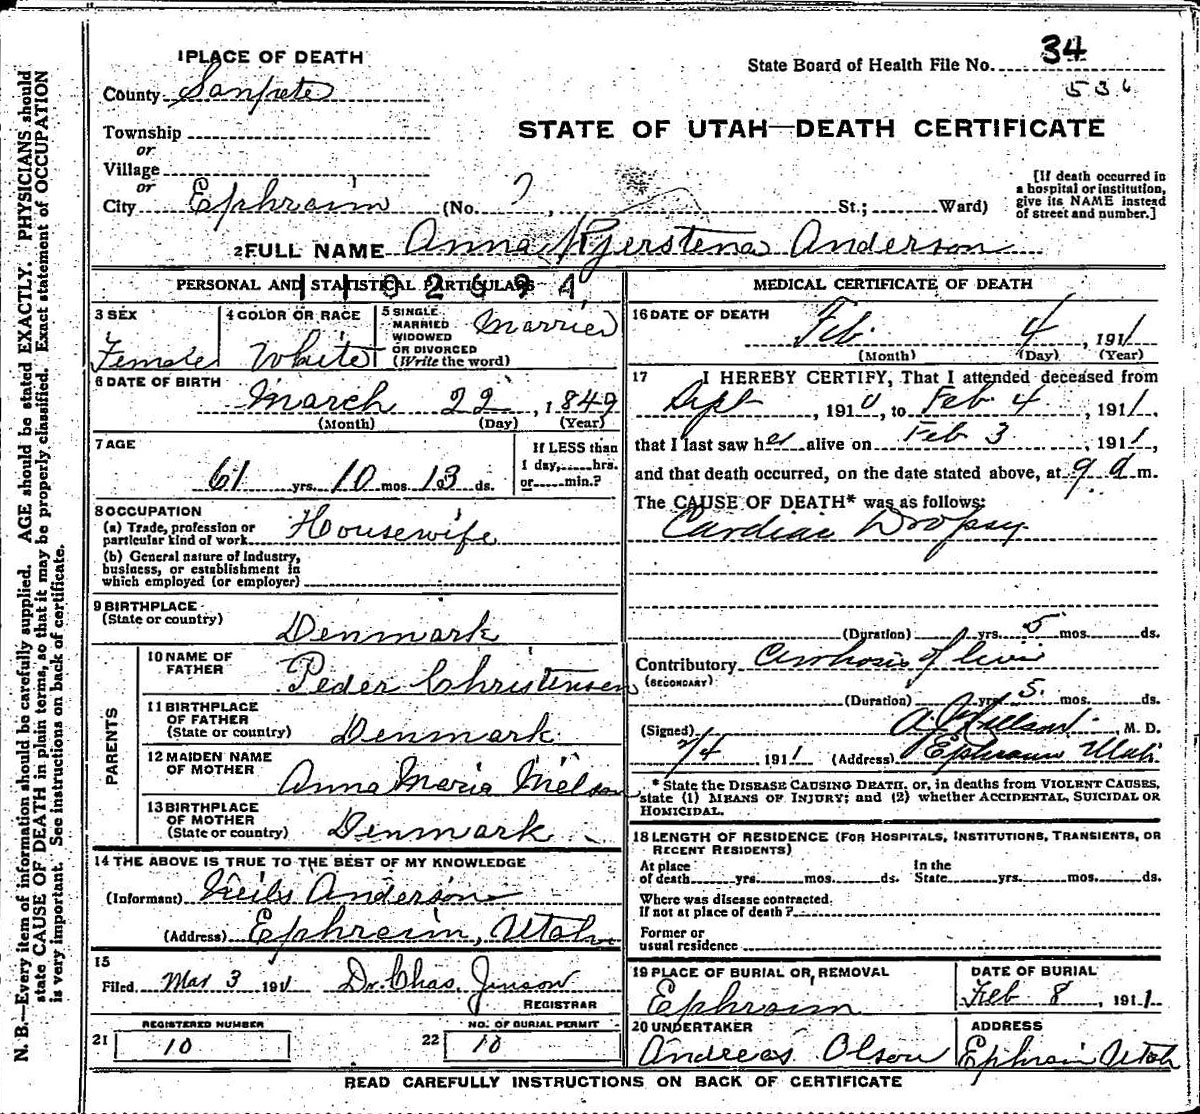 1 PLACE OF DEATH
County Sanpete
Township
or
Village
or
City Ephraim (No. ? , St.; Ward)
State Board of Health File No. 34
536
STATE OF UTAH—DEATH CERTIFICATE
[If death occurred in
a hospital or institution,
give its NAME instead
of street and number.]
2 FULL NAME Anna Kjerstena Anderson
PERSONAL AND STATISTICAL PARTICULARS
3 SEX
Female
4 COLOR OR RACE
White
5 SINGLE
MARRIED
WIDOWED
OR DIVORCED
(Write the word)
Married
6 DATE OF BIRTH
March 22, 1849
(Month) (Day) (Year)
7 AGE
61 yrs. 10 mos. 13 ds.
If LESS than
1 day,.....hrs.
or.....min.?
8 OCCUPATION
(a) Trade, profession or
particular kind of work Housewife
(b) General nature of industry,
business, or establishment in
which employed (or employer)
9 BIRTHPLACE
(State or country)
Denmark
PARENTS
10 NAME OF
FATHER
Peder Christensen
11 BIRTHPLACE
OF FATHER
(State or country)
Denmark
12 MAIDEN NAME
OF MOTHER
Anna Maria Nielson
13 BIRTHPLACE
OF MOTHER
(State or country)
Denmark
14 THE ABOVE IS TRUE TO THE BEST OF MY KNOWLEDGE
(Informant) Neils Anderson
(Address) Ephraim, Utah
15
Filed Mar 3 1911 Dr. Chas. Jenson
REGISTRAR
REGISTERED NUMBER
21 10
NO. OF BURIAL PERMIT
22 10
MEDICAL CERTIFICATE OF DEATH
16 DATE OF DEATH
Feb. 4, 1911
(Month) (Day) (Year)
17 I HEREBY CERTIFY, That I attended deceased from
Sept, 1910, to Feb 4, 1911,
that I last saw her alive on Feb 3, 1911,
and that death occurred, on the date stated above, at 9 a m.
The CAUSE OF DEATH* was as follows:
Cardiac Dropsy
(Duration) yrs. 5 mos. ds.
Contributory Cirrhosis of liver
(SECONDARY)
(Duration) yrs. 5 mos. ds.
(Signed) M. D.
2/4 1911 (Address) Ephraim Utah
* State the DISEASE CAUSING DEATH, or, in deaths from VIOLENT CAUSES,
state (1) MEANS OF INJURY; and (2) whether ACCIDENTAL, SUICIDAL OR
HOMICIDAL.
18 LENGTH OF RESIDENCE (FOR HOSPITALS, INSTITUTIONS, TRANSIENTS, OR
RECENT RESIDENTS)
At place
of death yrs. mos. ds.
In the
State yrs. mos. ds.
Where was disease contracted.
If not at place of death?
Former or
usual residence
19 PLACE OF BURIAL OR REMOVAL
Ephraim
DATE OF BURIAL
Feb 8, 1911
20 UNDERTAKER
Andreas Olson
ADDRESS
Ephraim Utah
READ CAREFULLY INSTRUCTIONS ON BACK OF CERTIFICATE
N. B.—Every item of information should be carefully supplied. AGE should be stated EXACTLY. PHYSICIANS should
state CAUSE OF DEATH in plain terms, so that it may be properly classified. Exact statement of OCCUPATION
is very important. See instructions on back of certificate.